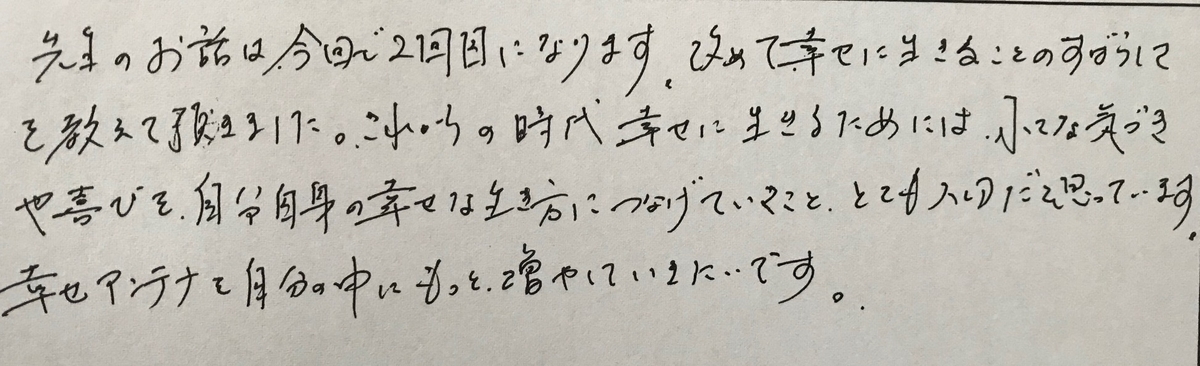 先生のお話は、今回で2回目になります。改めて幸せに生きることのすばらしさ
を教えて頂きました。これからの時代 幸せに生きるためには、小さな気づき
や喜びを、自分自身の幸せな生き方につなげていくこと、とても大切だと思っています。
幸せアンテナを自分の中にもっと、増やしていきたいです。